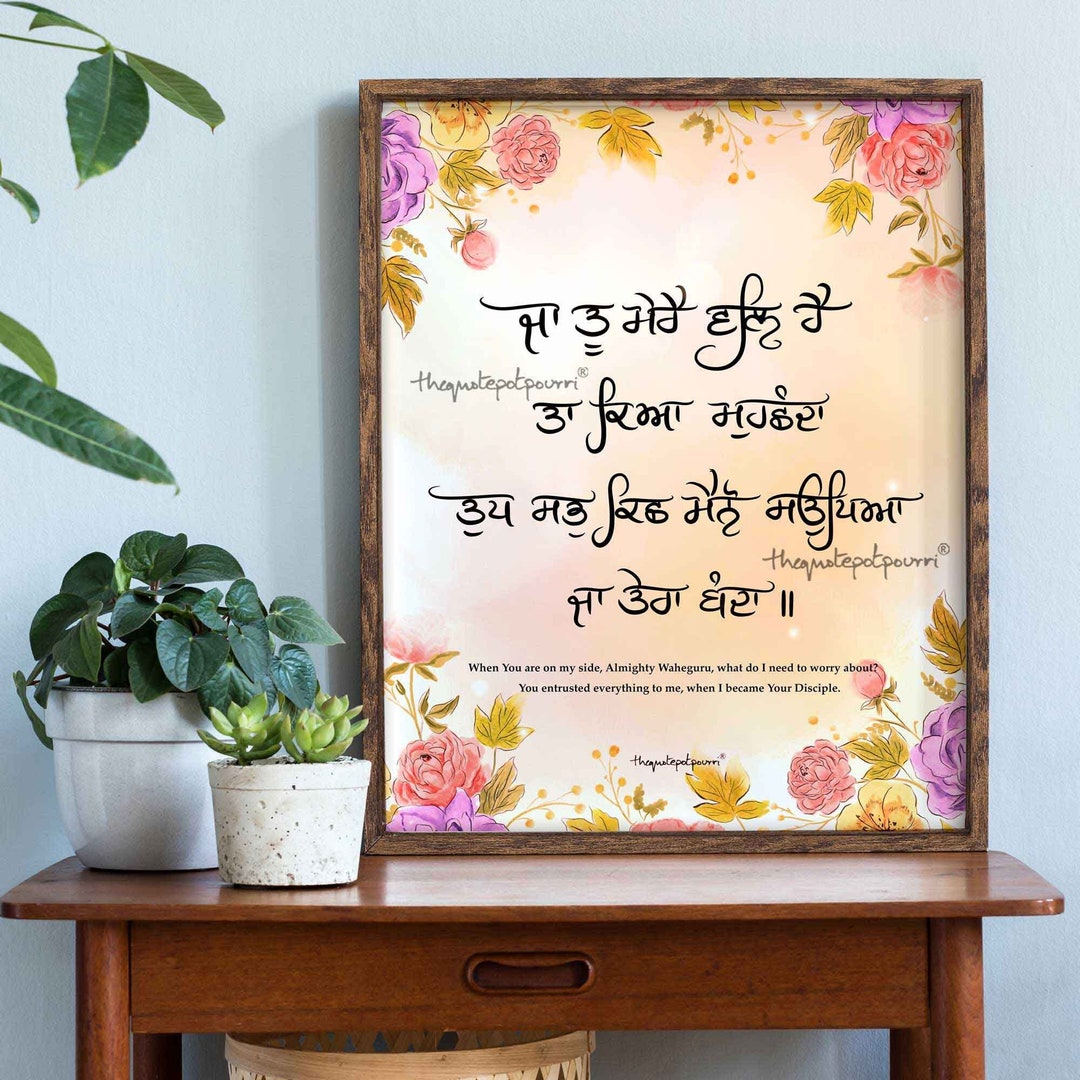 ਜਾ ਤੂ ਮੇਰੈ ਵਲਿ ਹੈ
thequotepotpourri®
ਤਾ ਕਿਆ ਮੁਹਛੰਦਾ
ਤੁਧ ਸਭੁ ਕਿਛ ਮੈਨੋ ਸਉਪਿਆ
thequotepotpourri®
ਜਾ ਤੇਰਾ ਬੰਦਾ ॥
When You are on my side, Almighty Waheguru, what do I need to worry about?
You entrusted everything to me, when I became Your Disciple.
thequotepotpourri®